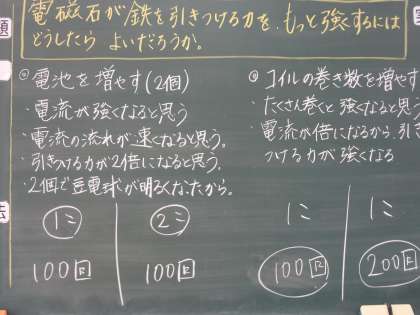 題
電磁石が鉄を引きつける力を、もっと強くするには
どうしたら よいだろうか。
◎電池を増やす(2個)
・電流が強くなると思う
・電流の流れが速くなると思う。
・引きつける力が2倍になると思う。
・2個で豆電球が明るくなったから。
◎コイルの巻き数を増やす
・たくさん巻くと強くなると思う
・電流が倍になるから、引き
つける力が強くなる
法
1コ
2コ
1コ
1コ
100回
100回
100回
200回